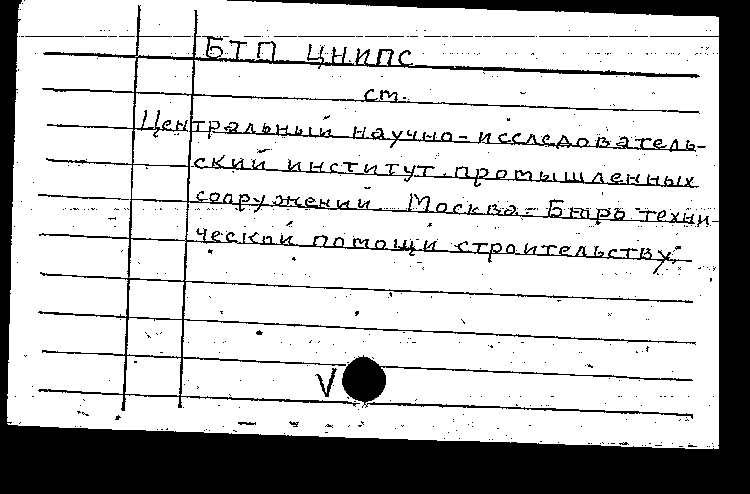 БТП ЦНИПС
ст.
Центральный научно-исследователь-
ский институт промышленных
сооружений. Москва. Бюро техни
ческой помощи строительству.
V